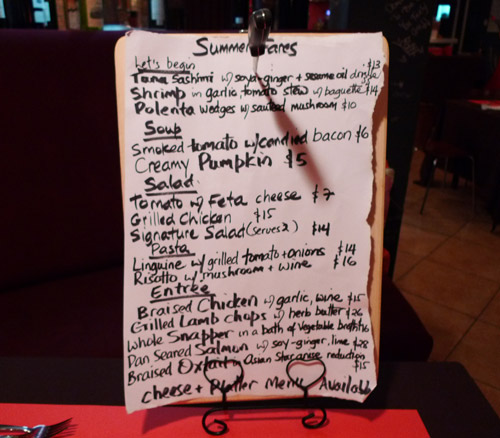 Summer Fares
Let's begin
Tuna Sashimi w/ soya-ginger + sesame oil drizzle $13
Shrimp in garlic, tomato stew w/ baguette $14
Polenta wedges w/ sauteed mushroom $10
Soup
Smoked tomato w/ candied bacon $6
Creamy Pumpkin $5
Salad
Tomato w/ Feta cheese $7
Grilled Chicken $15
Signature Salad (serves 2) $14
Pasta
Linguine w/ grilled tomato + onions $14
Risotto w/ mushroom + wine $16
Entrée
Braised Chicken w/ garlic, wine $15
Grilled Lamb Chops w/ herb butter $26
Whole Snapper in a bath of vegetable broth
Pan Seared Salmon w/ soy-ginger, lime $28
Braised Oxtail Asian reduction $15
Cheese + Platter Menu Available